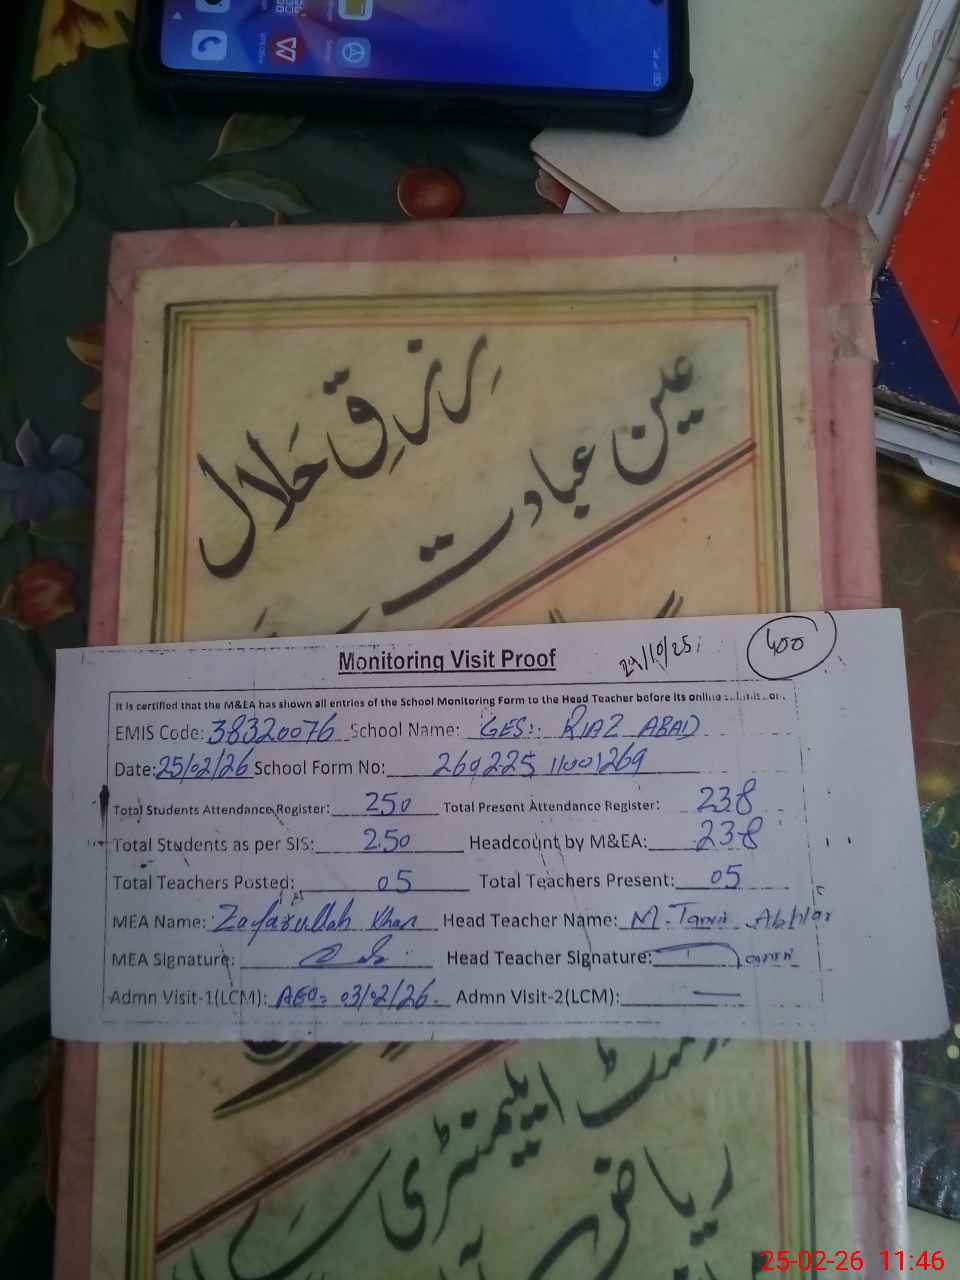 رزقِ حلال
عین عبادت
Monitoring Visit Proof
29/10/25
400
It is certified that the M&EA has shown all entries of the School Monitoring Form to the Head Teacher before its online
EMIS Code: 38320076 School Name: GES: RIAZ ABAD
Date: 25/02/26 School Form No: 269225 11001269
Total Students Attendance Register: 250 Total Present Attendance Register: 238
Total Students as per SIS: 250 Headcount by M&EA: 238
Total Teachers Posted: 05 Total Teachers Present: 05
MEA Name: Zafarullah Khan Head Teacher Name: M. Tanvir Akhtar
MEA Signature: Head Teacher Signature:
Admn Visit-1(LCM): AEO= 03/02/26. Admn Visit-2(LCM): —
ایلیمنٹری
ریاض
25-02-26 11:46